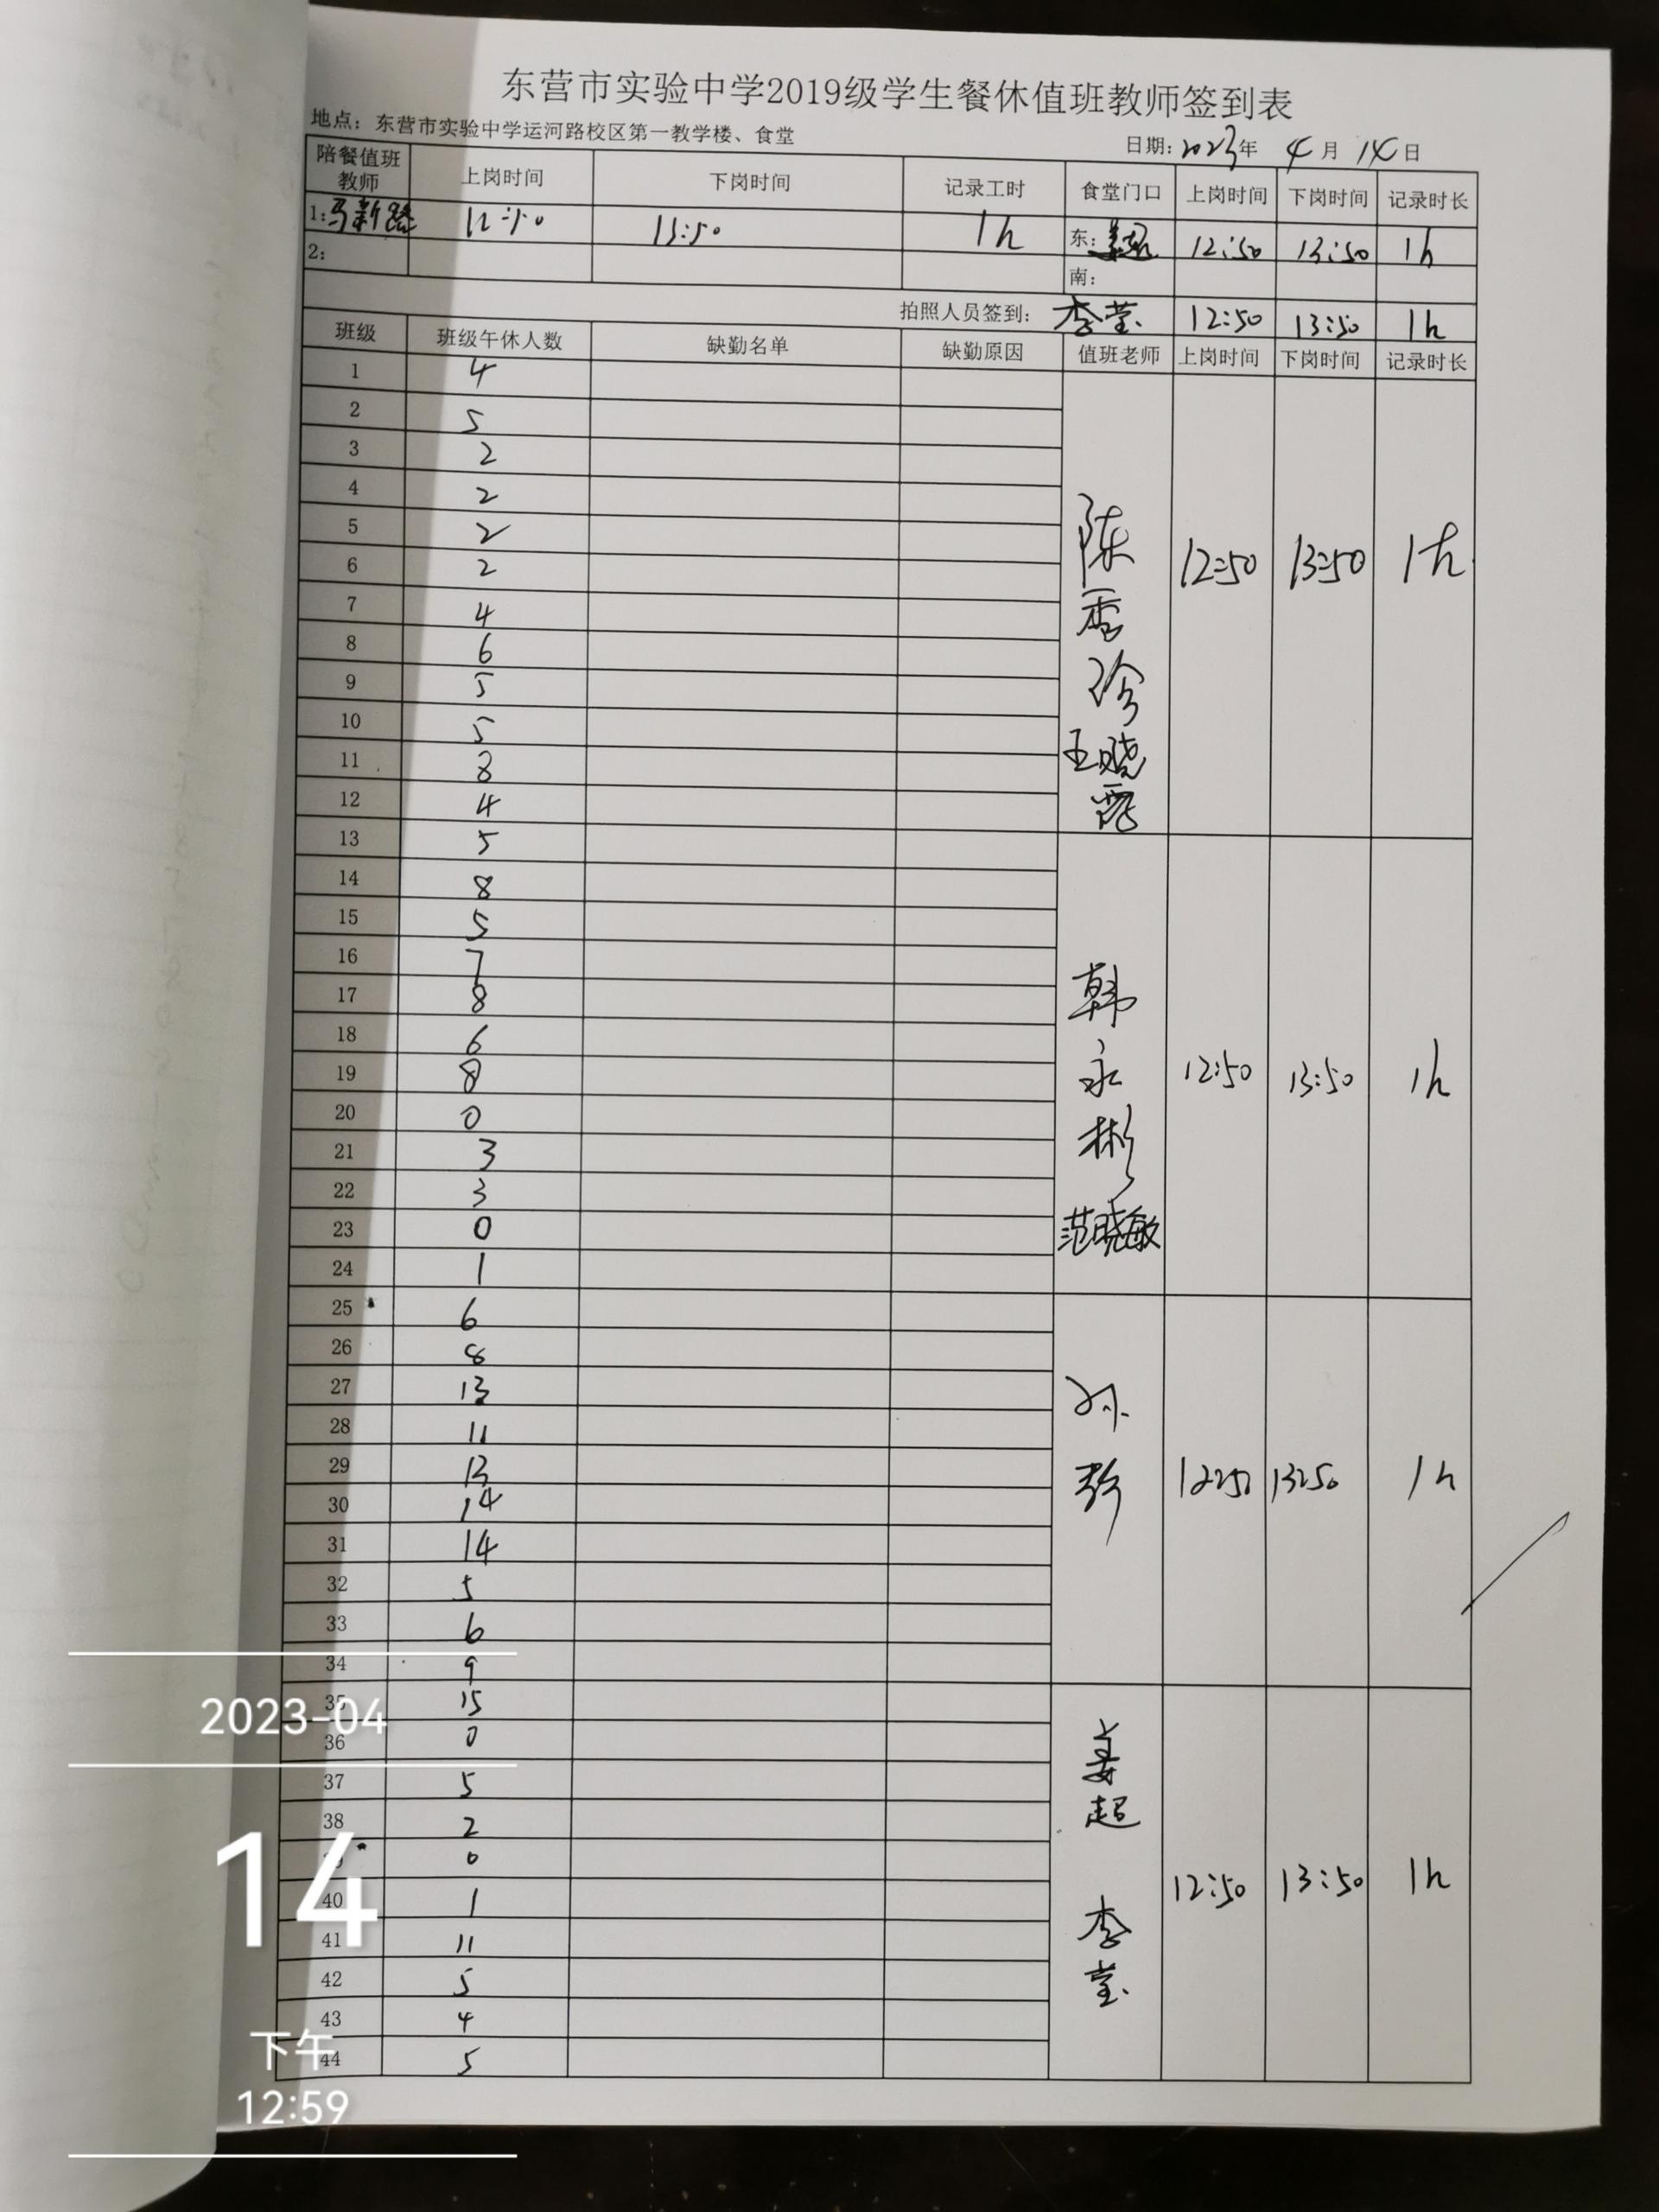 东营市实验中学2019级学生餐休值班教师签到表
地点：东营市实验中学运河路校区第一教学楼、食堂 日期：2023年 4月 14日
陪餐值班教师 上岗时间 下岗时间 记录工时 食堂门口 上岗时间 下岗时间 记录时长
1: 马新路 12:50 13:50 1h 东: 12:50 13:50 1h
2: 南:
拍照人员签到: 李莹 12:50 13:50 1h
班级 班级午休人数 缺勤名单 缺勤原因 值班老师 上岗时间 下岗时间 记录时长
1 4
2 5
3 2
4 2
5 2
6 2
陈香珍 王晓霞 12:50 13:50 1h
7 4
8 6
9 5
10 5
11 8
12 4
13 5
14 8
15 5
16 7
17 8
18 6
韩永彬 范晓敏 12:50 13:50 1h
19 8
20 0
21 3
22 3
23 0
24 1
25 6
26 8
27 13
28 11
29 13
孙彩 12:50 13:50 1h
30 14
31 14
32 5
33 6
34 9
35 15
36 0
37 5
38 2
39 0
姜超 李莹 12:50 13:50 1h
40 1
41 11
42 5
43 4
44 5
2023-04
14
下午
12:59